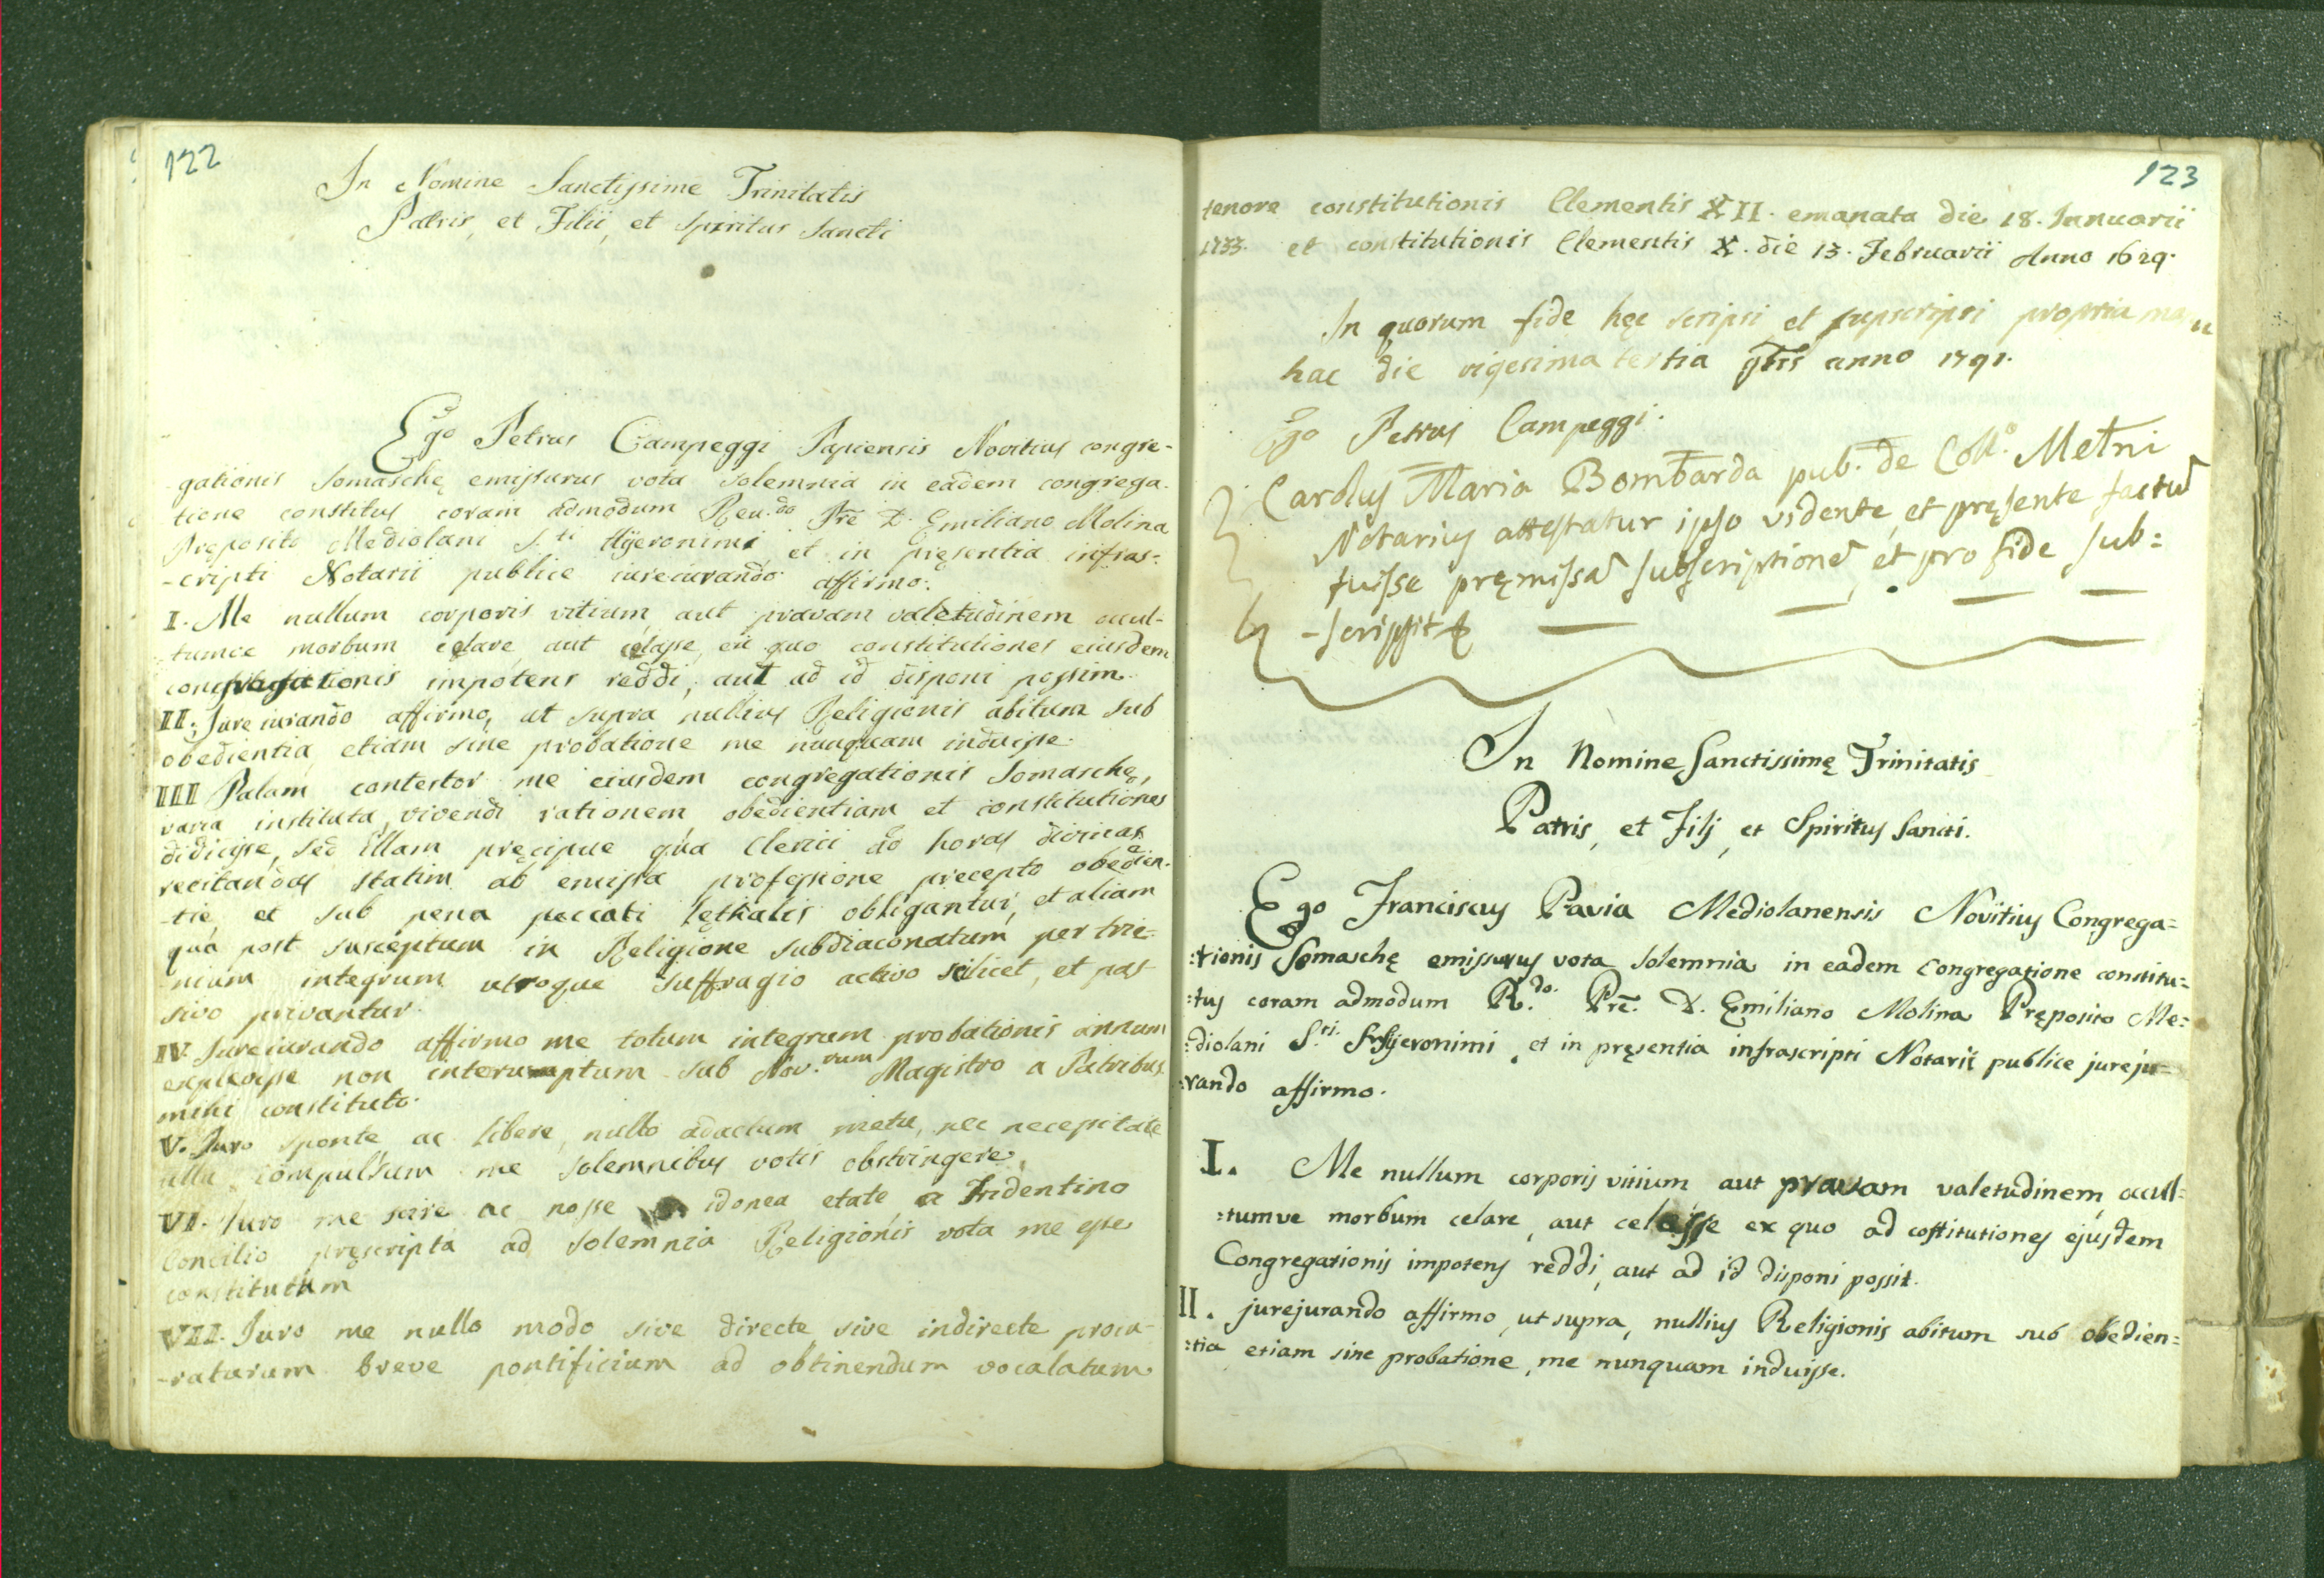 122
In Nomine Sanctissime Trinitatis
Patris, et Filii, et Spiritus Sancti
Ego Petrus Campeggi Papiensis Novitius congre-
gationis Somaschę emissurus vota solemnia in eadem congrega
tione constitus coram admodum Reu.do Prē D. Emiliano Molina
Preposito Mediolani S.ti Hyeronimi et in pręsentia infras-
-cripti Notarii publice iureiurando affirmo.
I. Me nullum corporis vitium aut pravam valetudinem occul-
tumve morbum celare, aut celasse, ex quo constitutiones eiusdem
congregationis impotens reddi, aut ad id disponi possim.
II. Jureiurando affirmo, ut supra nullius Religionis abitum sub
obedientia, etiam sine probatione me nunquam induisse.
III Palam contestor me eiusdem congregationis Somaschę,
varia instituta, vivendi rationem obedientiam et constitutiones
didicisse, sed illam pręcipue qua Clerici ad horas divinas
recitandas statim ab emissa professione precepto obedien-
-tię et sub pena peccati lęthalis obligantur, et aliam
qua post susceptum in Religione subdiaconatum per trie-
nium integrum utroque suffragio activo scilicet, et pas-
sivo privantur.
IV. Jureiurando affirmo me totum integrum probationis annum
explevisse non interuptum sub Nov.rum Magistro a Patribus
mihi constituto.
V. Juro sponte, ac libere, nullo adactum metu, nec necessitate
ulla compulsum me solemnibus votis obstringere.
VI. Juro me scire ac nosse idonea etate, a Tridentino
Concilio pręscripta ad solemnia Religionis vota me esse
constitutum
VII. Juro me nullo modo sive directe, sive indirecte procu-
-raturum breve pontificium ad obtinendum vocalatum
123
tenore constitutionis Clementis XII. emanata die 18. Januarii
1733. et constitutionis Clementis X. die 13. Februarii Anno 1629.
In quorum fide hęc scripsi et supscripsi propria manu
hac die vigesima tertia 9bris anno 1791.
Ego Petrus Campeggi.
Carolus Maria Bombarda pub. de Coll.o Metni
Notarius attestatur ipso vidente, et pręsente factū
fuisse pręmissā subscriptionē, et pro fide sub:
-scripsit
In Nomine Sanctissimę Trinitatis
Patris, et Filj, et Spiritus Sancti.
Ego Franciscus Pavia Mediolanensis Novitius Congrega=
:tionis Somaschę emissurus vota solemnia in eadem Congregatione constitu=
:tus coram admodum R.do Prē. D. Emiliano Molina Pręposito Me=
:diolani S.ti Hyeronimi, et in pręsentia infrascripti Notarii publice jureju=
:rando affirmo.
I. Me nullum corporis vitium, aut pravam valetudinem, occull=
:tumve morbum celare, aut celasse ex quo ad costitutiones ejusdem
Congregationis impotens reddi, aut ad id disponi possit.
II. jurejurando affirmo, ut supra, nullius Religionis abitum sub obedien=
:tia etiam sine probatione, me nunquam induisse.